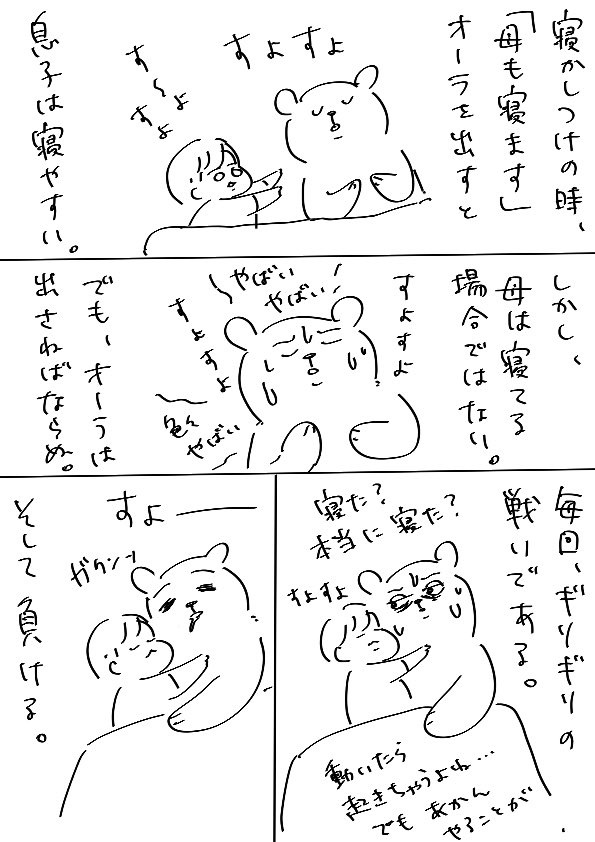 寝かしつけの時、
「母も寝ます」
オーラを出すと
すよすよ
す〜よ
すよ
息子は寝やすい。
しかし、
母は寝てる
場合ではない。
すよすよ
やばい
やばい
すよすよ
色々
やばい
でも、オーラは
出さねばならぬ。
毎回、ギリギリの
戦いである。
寝た?
本当に寝た?
すよすよ
動いたら
起きちゃうよね…
でもあかん
やることが
すよ――
ガクンッ
そして負ける。